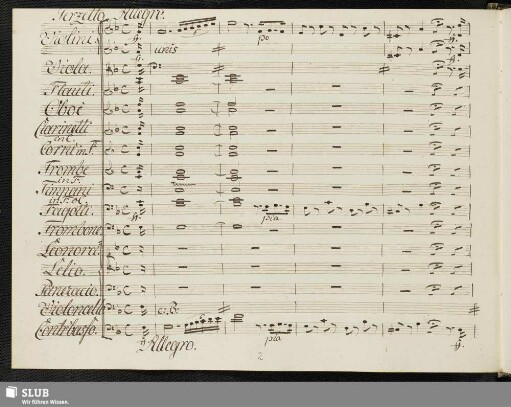 Terzetto Allegro.
Violini
unis
po
Viola.
Flauti.
Oboi
Clarinetti
in C.
Corni in F.
Trombe
in F.
Timpani
in F. C.
Fagotti.
pia
Trombone
Leonora
Lelio.
Pancrazio.
Violoncello
c: B:
Contrabasso.
pia
Allegro.
2
SLUB
Wir führen Wissen.